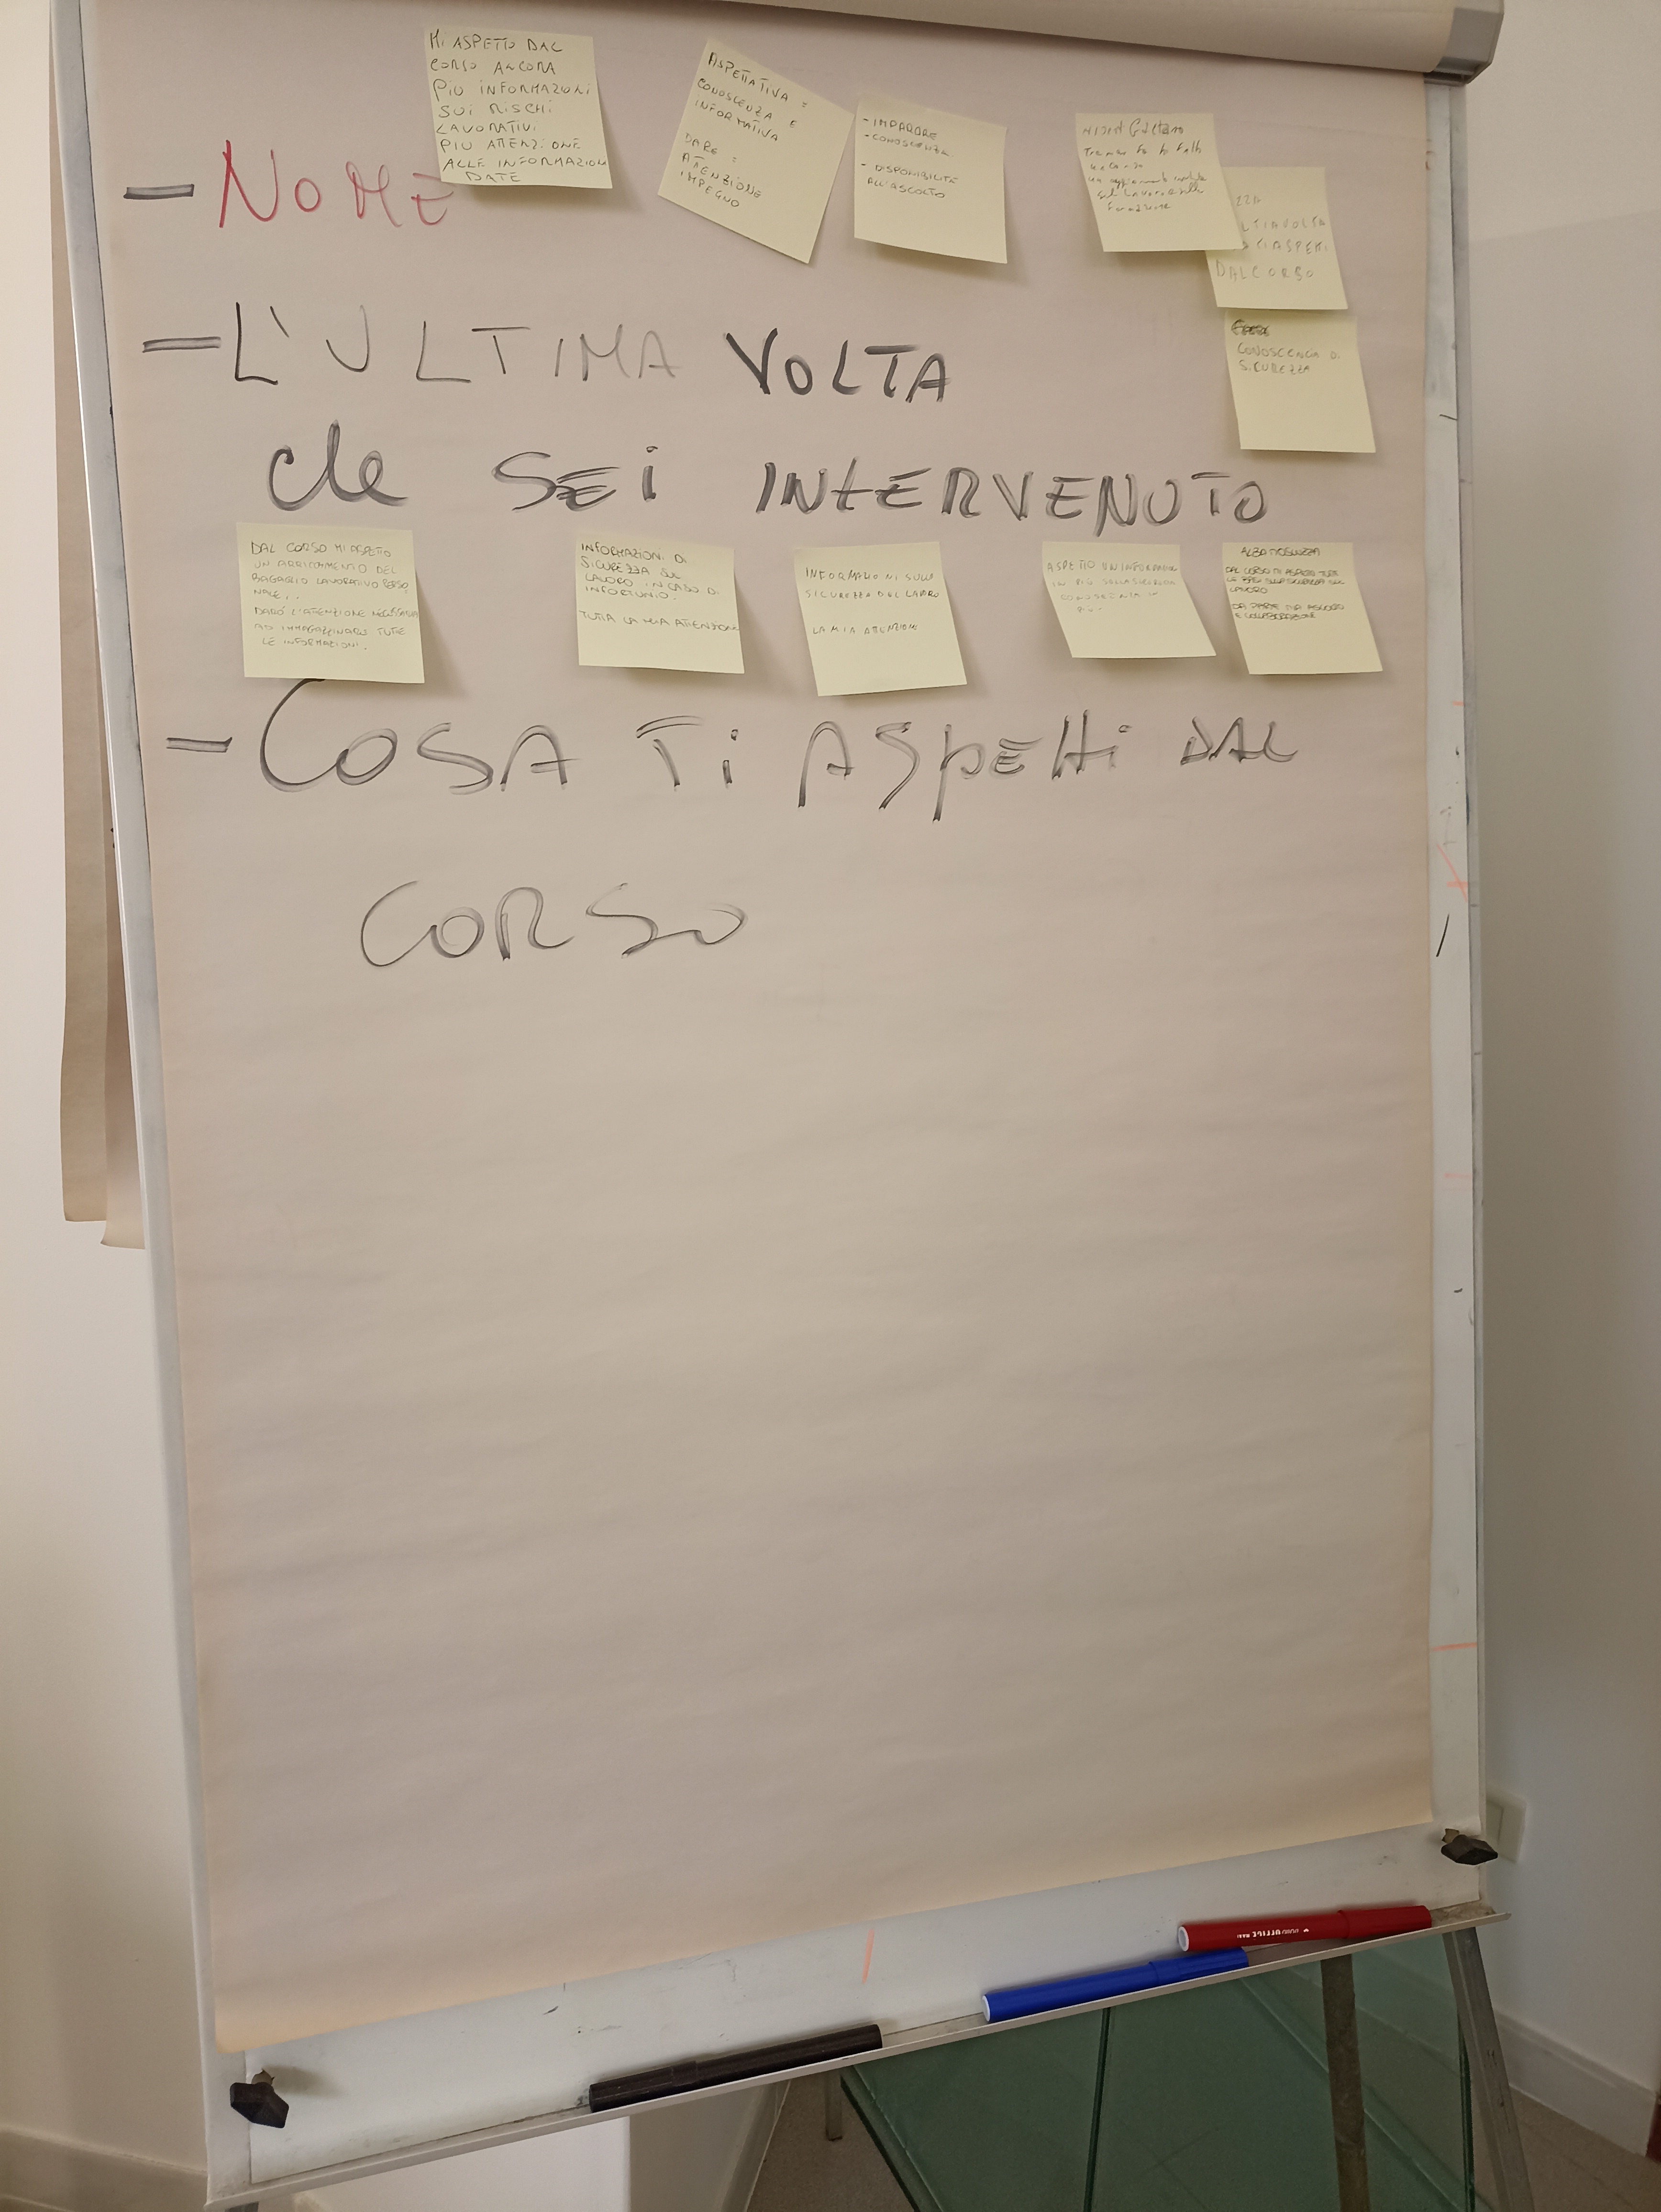 MI ASPETTO DAL
CORSO ANCORA
PIÙ INFORMAZIONI
SUI RISCHI
LAVORATIVI
PIÙ ATTENZIONE
ALLE INFORMAZIONI
DATE
ASPETTATIVA =
CONOSCENZA E
INFORMATIVA
DARE =
ATTENZIONE
IMPEGNO
- IMPARARE
- CONOSCENZA
- DISPONIBILITÀ
ALL'ASCOLTO
Gaetano
DAL CORSO
CONOSCENCIA DI
SICUREZZA
- NOME
- L'ULTIMA VOLTA
che SEI INTERVENUTO
DAL CORSO MI ASPETTO
UN ARRICCHIMENTO DEL
BAGAGLIO LAVORATIVO PERSO
NALE..
DARÒ L'ATTENZIONE NECESSARIA
AD IMMAGAZZINARE TUTTE
LE INFORMAZIONI.
INFORMAZIONI DI
SICUREZZA SUL
LAVORO IN CASO DI
INFORTUNIO.
TUTTA LA MIA ATTENZIONE
INFORMAZIONI SULLA
SICUREZZA SUL LAVORO
LA MIA ATTENZIONE
ASPETTO UN INFORMAZION
IN PIÙ SULLA SICUREZZA
CONOSCENZA IN
PIÙ.
ALBA
DAL CORSO MI ASPETTO TUTTE
LE BASI SULLA SICUREZZA SUL
LAVORO
DA PARTE MIA ASCOLTO
E COLLABORAZIONE
- COSA TI ASPETTI DAL
CORSO